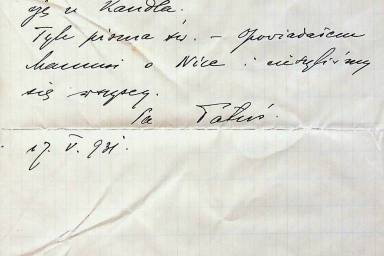 ję u Kandla.
Tyle pisma św. – Opowiadałem
Mamusi o Nice i cieszyliśmy
się wszyscy.
Pa Tatuś.
17. V. 931.